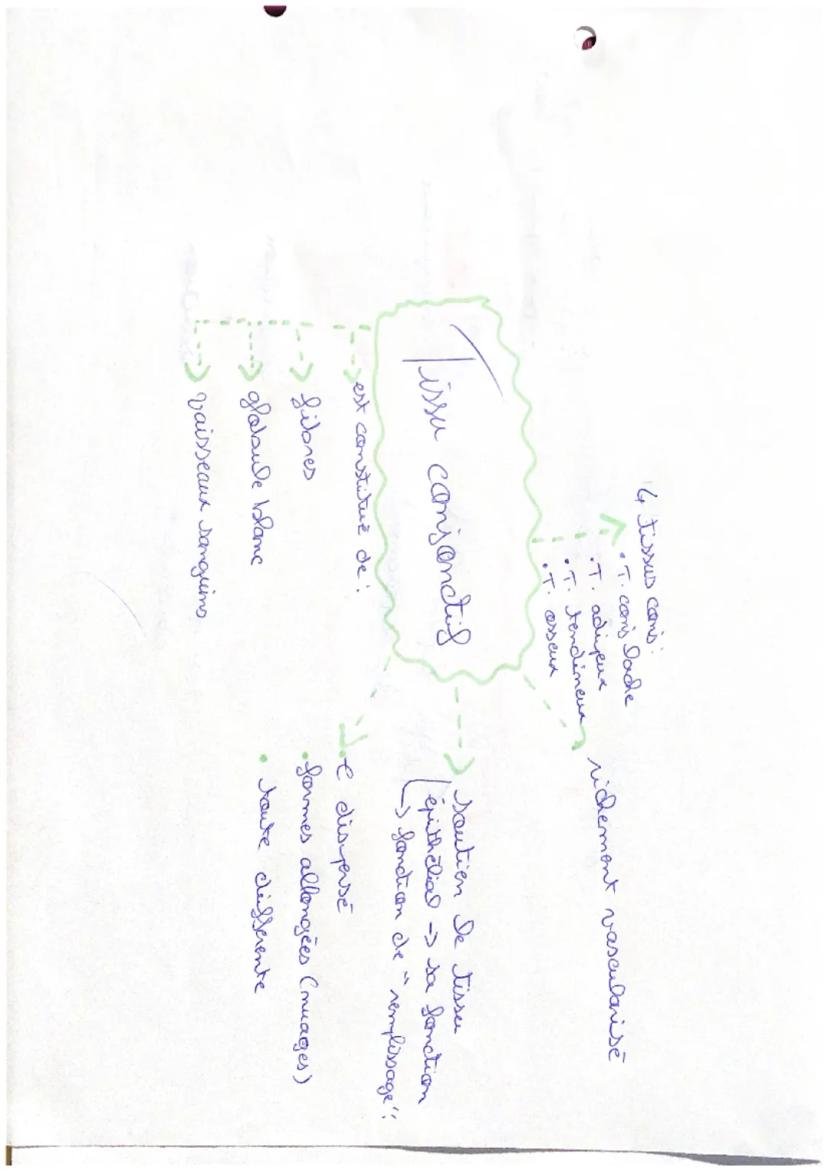 4 tissus conj:
• T. conj lache
• T. adipeux
• T. tendineux
• T. osseux
richement vascularisé
Tissu conjonctif
soutien le tissu
épithélial -> sa fonction
-> fonction de "remplissage"
est constitué de:
fibres
globule blanc
vaisseaux sanguins
• C dispersé
• formes allongées (nuages)
• toute différente